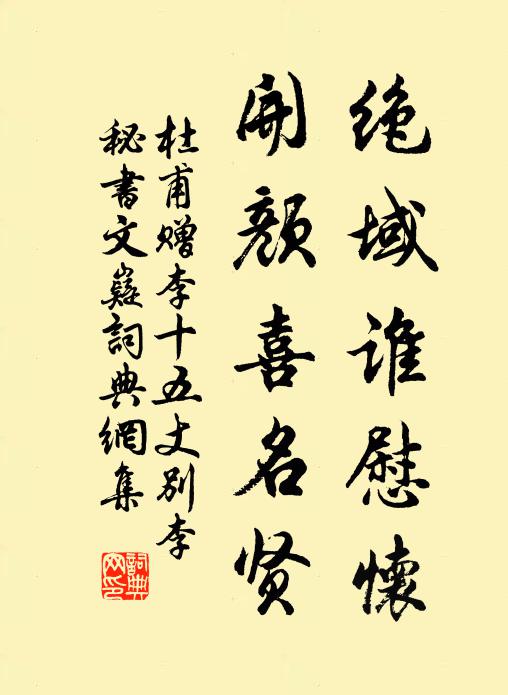 绝域谁慰怀
开颜喜名贤
杜甫赠李十五丈别李
秘书文嶷詞典網集
詞典网印